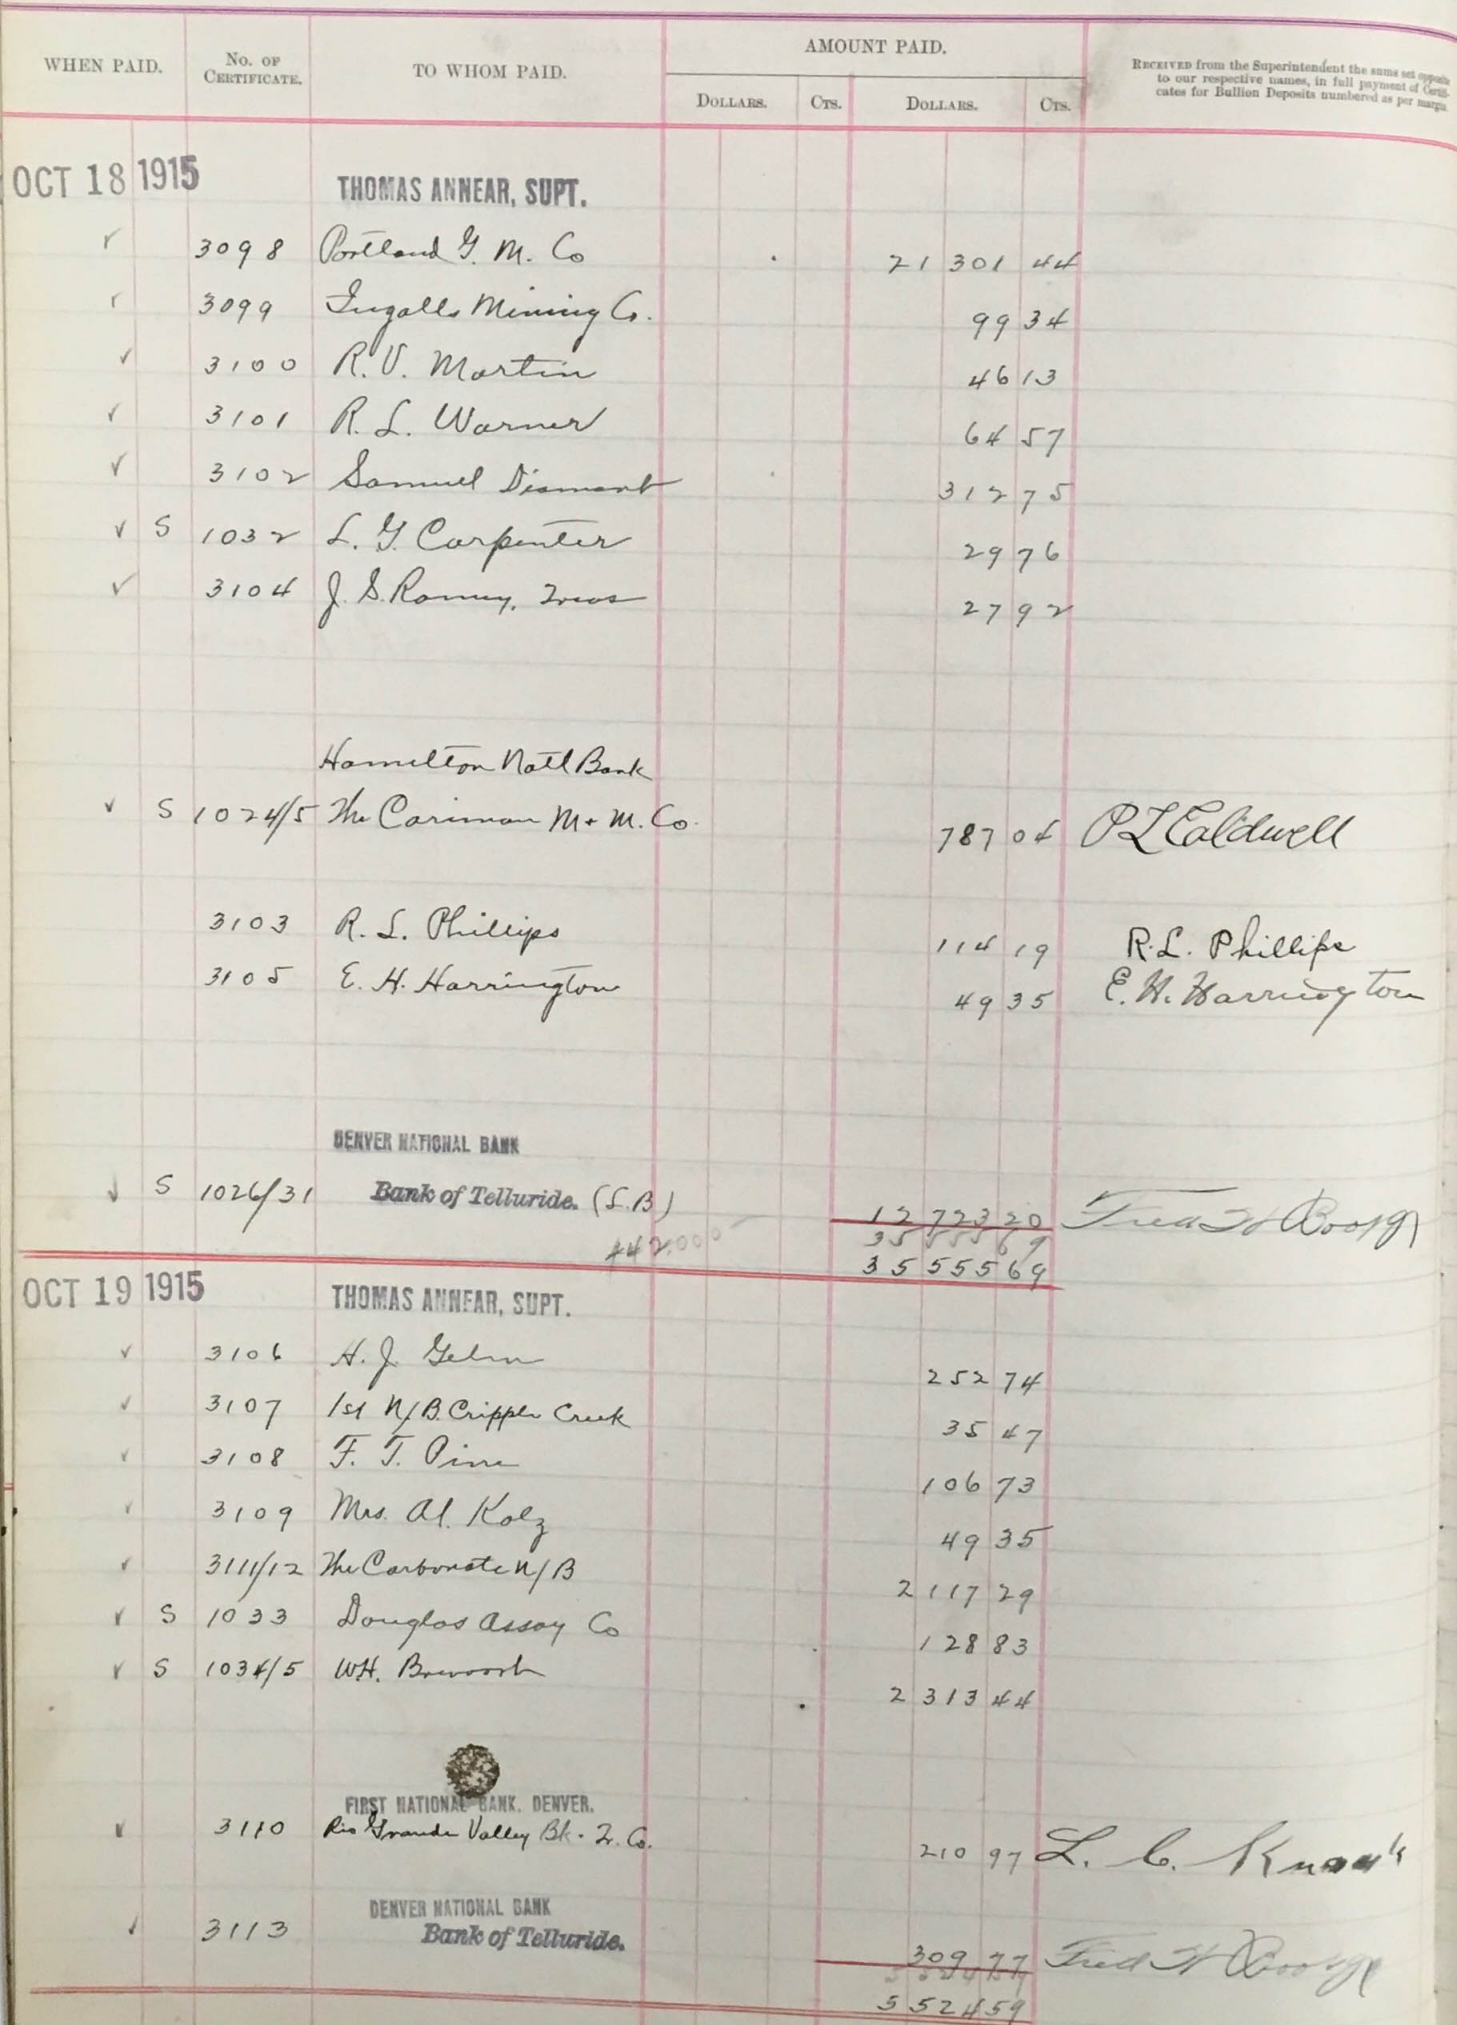 WHEN PAID. No. of Certificate. TO WHOM PAID. AMOUNT PAID. Dollars. Cts. Dollars. Cts.
Received from the Superintendent the sums set opposite
to our respective names, in full payment of Certifi-
cates for Bullion Deposits numbered as per margin
OCT 18 1915 THOMAS ANNEAR, SUPT.
✓ 3098 Portland G. M. Co 21 301 44
✓ 3099 Ingalls Mining Co. 99 34
✓ 3100 R. V. Martin 46 13
✓ 3101 R. L. Warner 64 57
✓ 3102 Samuel Diamant 312 75
✓ S 1032 L. G. Carpenter 29 76
✓ 3104 J. S. Ramey, Treas 27 92
Hamilton Natl Bank
✓ S 1024/5 The Cariman M + M. Co. 787 04 P L Caldwell
3103 R. L. Phillips 114 19 R. L. Phillips
3105 E. H. Harrington 49 35 E. H. Harrington
DENVER NATIONAL BANK
✓ S 1026/31 Bank of Telluride. (S.B) 12 723 20 Fred H
442000 35 555 69
35 555 69
OCT 19 1915 THOMAS ANNEAR, SUPT.
✓ 3106 H. J. 252 74
✓ 3107 1st N/B. Cripple Creek 35 47
✓ 3108 F. T. Pine 106 73
✓ 3109 Mrs. Al. Kolz 49 35
✓ 3111/12 The Carbonate N/B 2 117 29
✓ S 1033 Douglas Assay Co 128 83
✓ S 1034/5 W.H. 2 313 44
FIRST NATIONAL BANK. DENVER.
✓ 3110 Rio Grande Valley Bk. T. Co. 210 97 L. C.
DENVER NATIONAL BANK
✓ 3113 Bank of Telluride. 309 77 Fred H
5 524 59
5 524 59